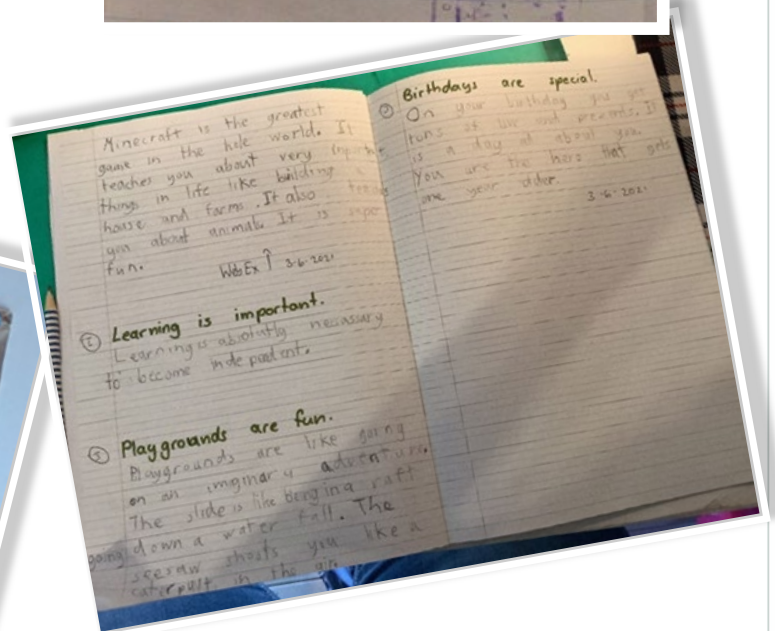 Minecraft is the greatest
game in the hole world. It
teaches you about very
things in life like building a
house and farms. It also
you about animals. It is
fun.
WebEx 3.6.2021
② Learning is important.
Learning is abiolutly necussary
to become indepedent.
③ Playgrounds are fun.
Playgrounds are like going
on an imginary adventure.
The slide is like being in a raft
going down a water fall. The
seesaw shoots you like a
caterpult in the air.
Birthdays are special.
On your birthday you get
tuns of love and presents. It
is a day all about you.
You are the hero that gets
one year older.
3.6.2021